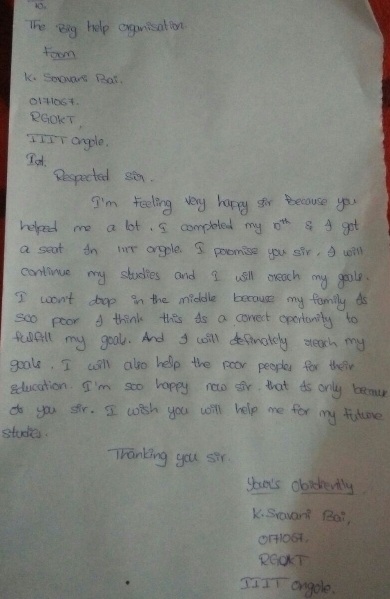 To,
The Big help organisation
From
K. Sravani Bai.
O171067.
RGUKT,
IIIT ongole.
Respected sir.
I'm feeling very happy sir Because you
helped me a lot. I completed my 10th & I got
a seat In IIIT ongole. I promise you sir. I will
continue my studies and I will reach my goals.
I won't drop in the middle because my family Is
soo poor I think this Is a correct oportunity to
fulfill my goals. And I will definately reach my
goals. I will also help the poor peoples for their
Education. I'm soo happy now sir. that Is only because
of you sir. I wish you will help me for my future
studies.
Thanking you sir.
Your's obidiently
K. Sravani Bai,
O171067.
RGUKT
IIIT ongole.